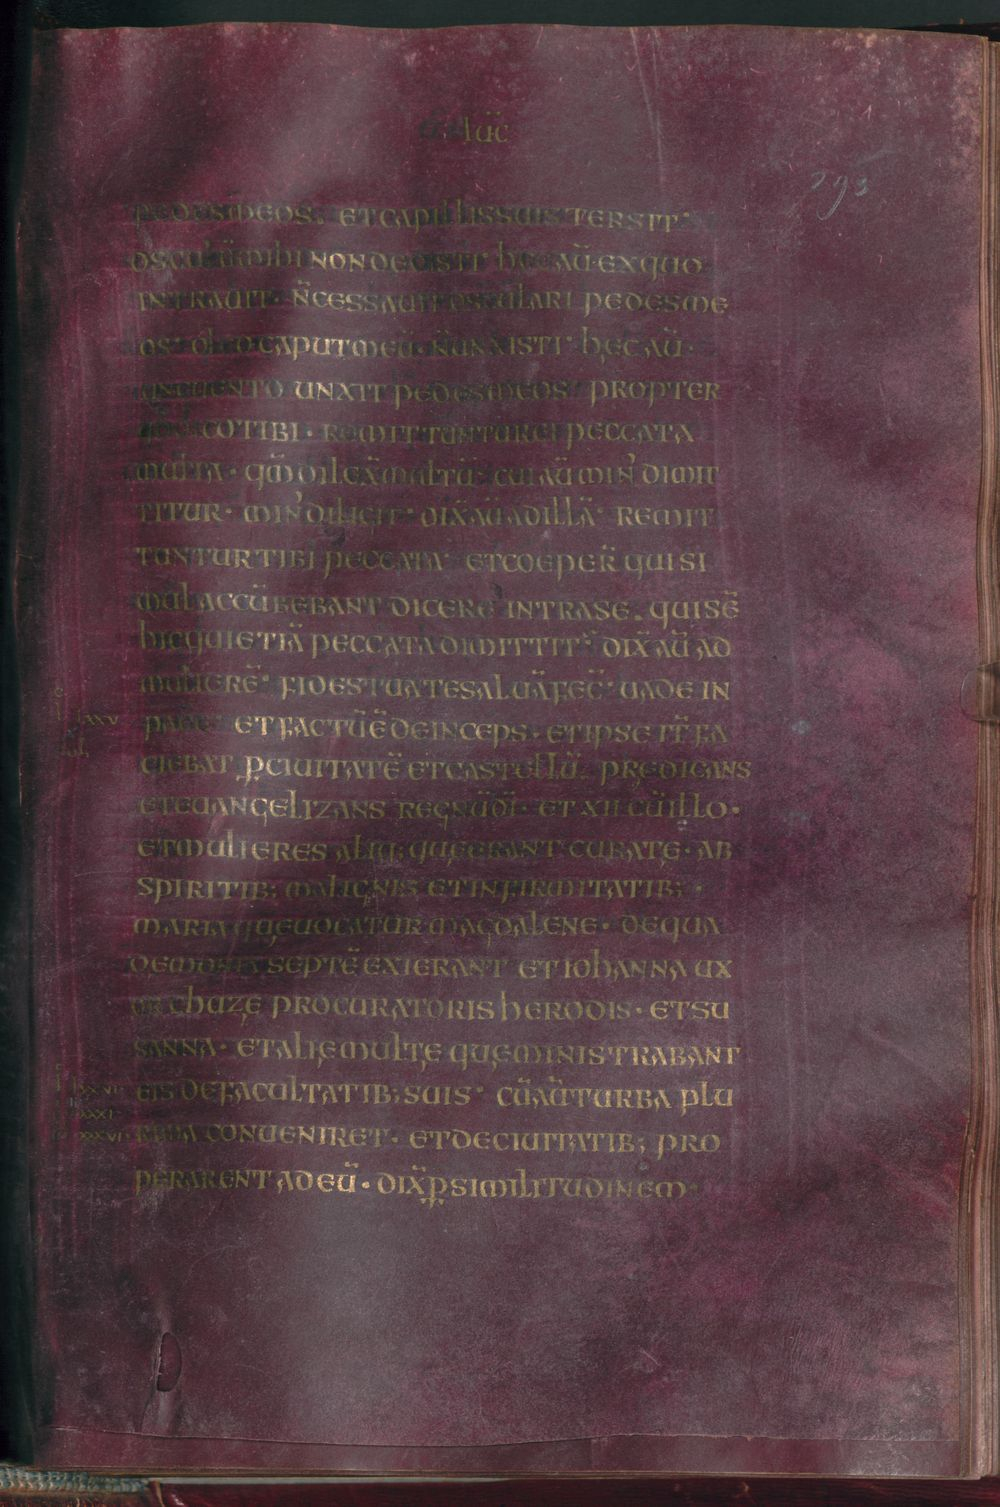 luc̄
295
PEDES MEOS; ET CAPILLIS SUIS TERSIT·
OSCULŪ MIHI NON DEDISTI· hEC AŪ EX QUO
INTRAUIT· N̄ CESSAUIT OSCULARI PEDES ME
OS· OLEO CAPUT MEŪ· N̄ UNXISTI· hĘC AŪ·
UNGUENTO UNXIT PEDES MEOS· PROPTER
DICO TIBI· REMITTUNTUR EI PECCATA
MULTA· QM̄ DILEX̄ MULTŪ· CUI AŪ MIN' DIMIT
TITUR· MIN' DILIGIT· DIX̄ AŪ AD ILLĀ· REMIT
TUNTUR TIBI PECCATA· ET COEPER̄ QUI SI
MUL ACCŪBEBANT DICERE INTRA SE. QUIS Ē
hIC QUI ETIĀ PECCATA DIMITTIT· DIX̄ AŪ AD
MULIERĒ· FIDES TUA TE SALUĀ FEC̄· UADE IN
PACE· ET FACTŪ Ē DEINCEPS· ET IPSE IT̄ FA
CIEBAT P̱ CIUITATĒ ET CASTELLŪ· PRĘDICANS
ET EUANGELIZANS REGNŪ DĪ· ET XII CŪ ILLO·
ET MULIERES ALIĘ· QUĘ ERANT CURATĘ· AB
SPIRITIB; MALIGNIS ET INFIRMITATIB;·
MARIA QUĘ UOCATUR MAGDALENE· DE QUA
DEMONIA SEPTĒ EXIERANT ET IOhANNA UX
OR ChUZĘ PROCURATORIS hERODIS· ET SU
SANNA· ET ALIĘ MULTĘ QUĘ MINISTRABANT
EIS DE FACULTATIB; SUIS· CŪ AŪ TURBA PLU
RIMA CONUENIRET· ET DE CIUITATIB; PRO
PERARENT AD EŪ· DIX̄ P̱ SIMILITUDINEM·